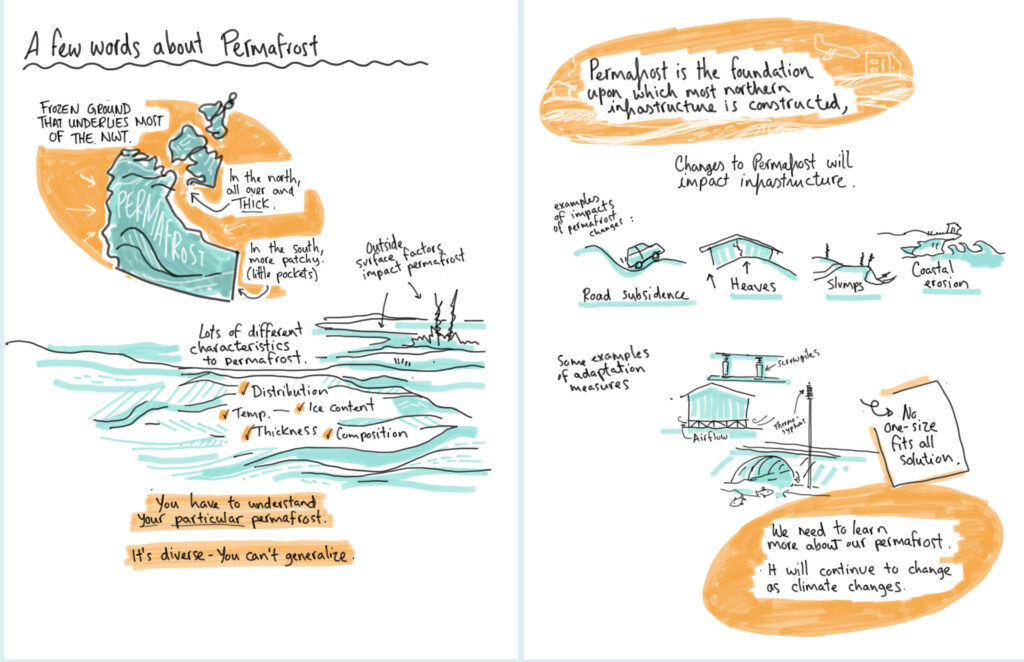 A few words about Permafrost
FROZEN GROUND
THAT UNDERLIES MOST
OF THE NWT.
In the north,
all over and
THICK.
PERMAFROST
In the south,
more patchy.
(little pockets)
Outside
surface factors
impact permafrost
Lots of different
characteristics
to permafrost.
Distribution
Temp.
Ice content
Thickness
Composition
You have to understand
your particular permafrost.
It's diverse - You can't generalize.
Permafrost is the foundation
upon which most northern
infrastructure is constructed,
Changes to Permafrost will
impact infrastructure.
examples
of impacts
of permafrost
changes:
Road subsidence
Heaves
Slumps
Coastal
erosion
Some examples
of adaptation
measures
screwpiles
Airflow
Thermo-
syphons
No
one-size
fits all
solution.
We need to learn
more about our permafrost.
It will continue to change
as climate changes.